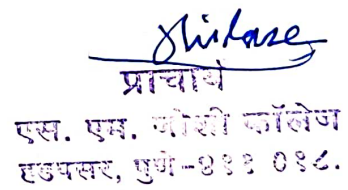 प्राचार्य
एस. एम. जोशी कॉलेज
हडपसर, पुणे-४११ ०२८.